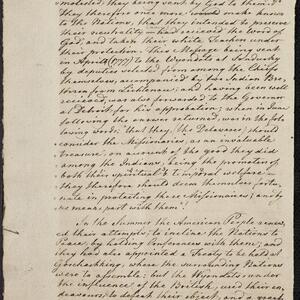 molested, they being sent by God to them;
they therefore once more would make known
to the Nations, that they intended to preserve
their neutrality — had received the Word of
God, and had their white Teachers under
their protection. This Message being sent
in April (1777) to the Wyondots at Sandusky
by deputies selected from among the Chiefs
themselves, accompanied by two Indian Bre
thren from Lichtenau; and having been well
received, was also forwarded to the Governor
at Detroit, for his approbation; when in June
following the answer returned, was in the fol
lowing words: that they, (the Delawares) should
consider the Missionaries, as an invaluable
treasure; on account of the good they did
among the Indians, being the promoters of
both their spiritual & temporal welfare —
they therefore should deem themselves fortu
nate in protecting these Missionaries; and by
no means part with them."
In the Summer the American People renew
ed their attempts, to incline the Nations to
Peace, by holding Conferences with them; and
they had also appointed a Treaty to be held at
Goschacking, where the surrounding Nations
were to assemble; but the Wyondots under
the influence of the British, used their en
deavours, to defeat their object, and a